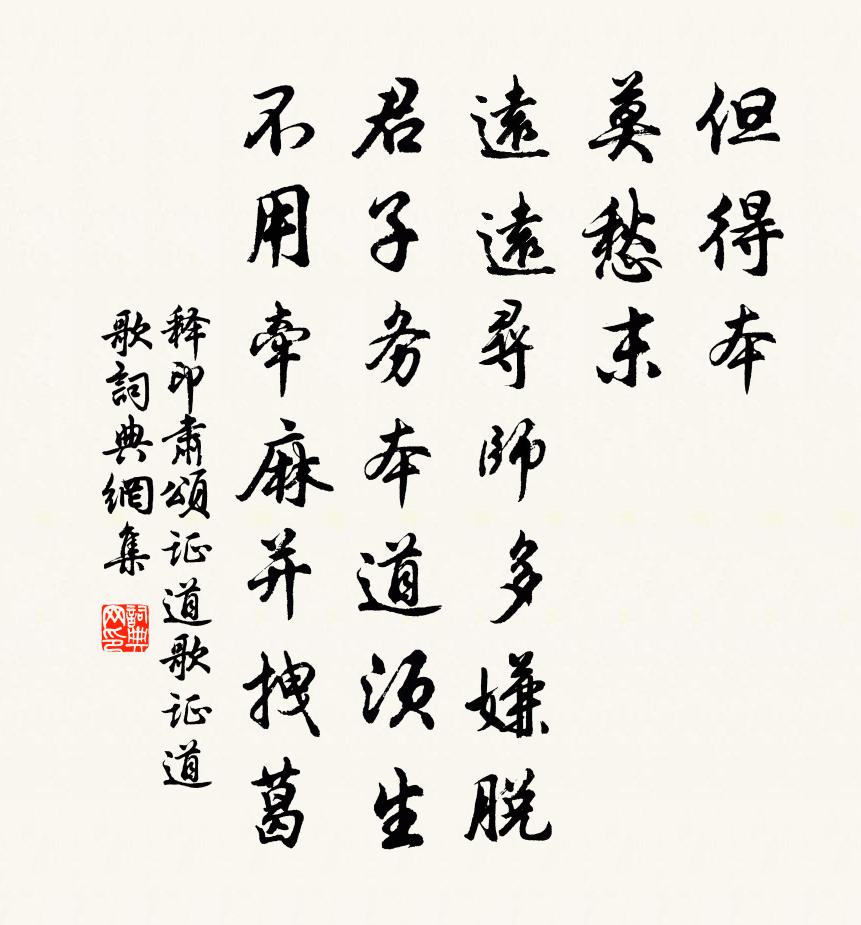 但得本
莫愁末
遠遠尋師多嫌脫
君子务本道須生
不用牽麻并拽葛
释印肅頌证道歌证道
歌詞典網集
詞典
网印